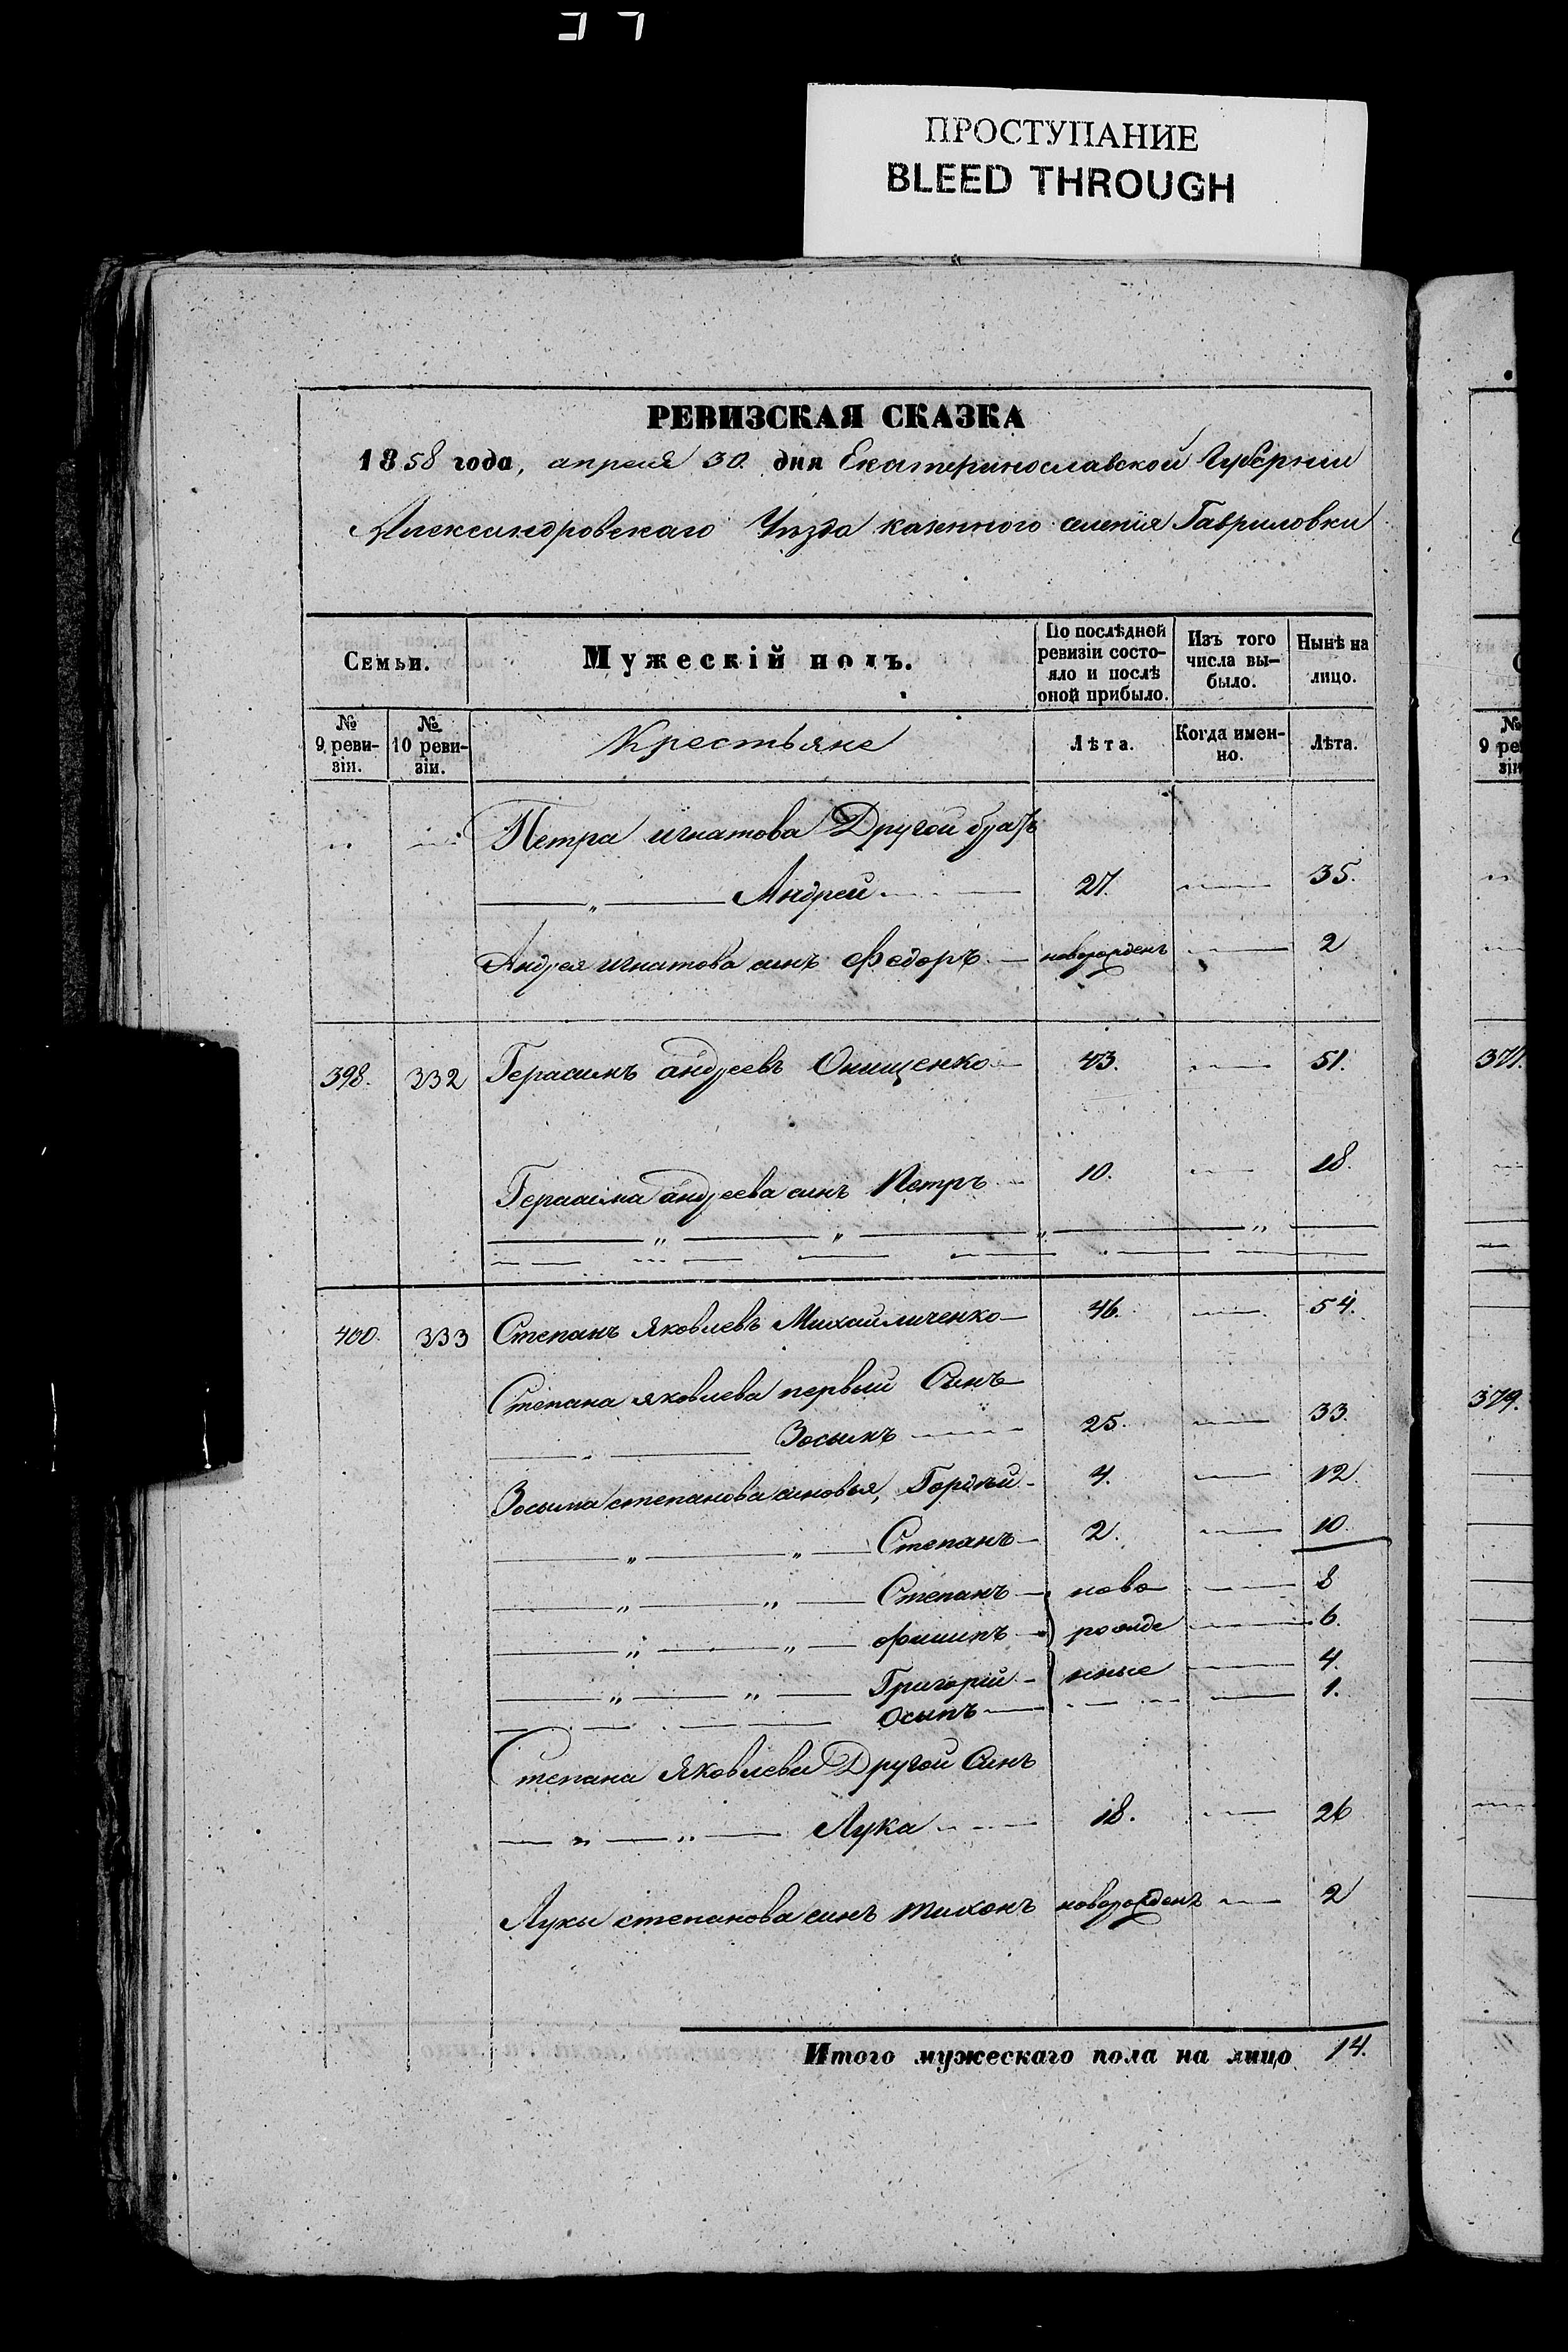 ПРОСТУПАНИЕ
BLEED THROUGH
РЕВИЗСКАЯ СКАЗКА
1858 года, апреля 30. дня Екатеринославской Губернии
Александровскаго Уѣзда казенного селенія Гавриловки
Семьи. Мужескій полъ. По послѣдней ревизіи состояло и послѣ оной прибыло. Изъ того числа выбыло. Нынѣ на лицо.
№ 9 ревизіи. № 10 ревизіи. Крестьяне Лѣта. Когда именно. Лѣта.
Петра игнатова Другой братъ
Андрей 27. 35.
Андрея игнатова синъ Федоръ новорожденъ 2
398. 332 Герасимъ андреевъ Онищенко 43. 51.
Герасима андреева синъ Петръ 10. 18.
400. 333 Степанъ Яковлевъ Михайличенко 46. 54.
Степана яковлева первый Синъ
Зосымъ 25. 33.
Зосыма степанова синовья, Гордѣй 4. 12
Степанъ 2. 10.
Степанъ ново 8
Филипъ рожде 6.
Григорій нные 4.
Осыпъ 1.
Степана Яковлева Другой Синъ
Лука 18. 26
Луки степанова синъ тихонъ новорожденъ 2
Итого мужескаго пола на лицо 14.
№ 9 ре
зі
371.
379.